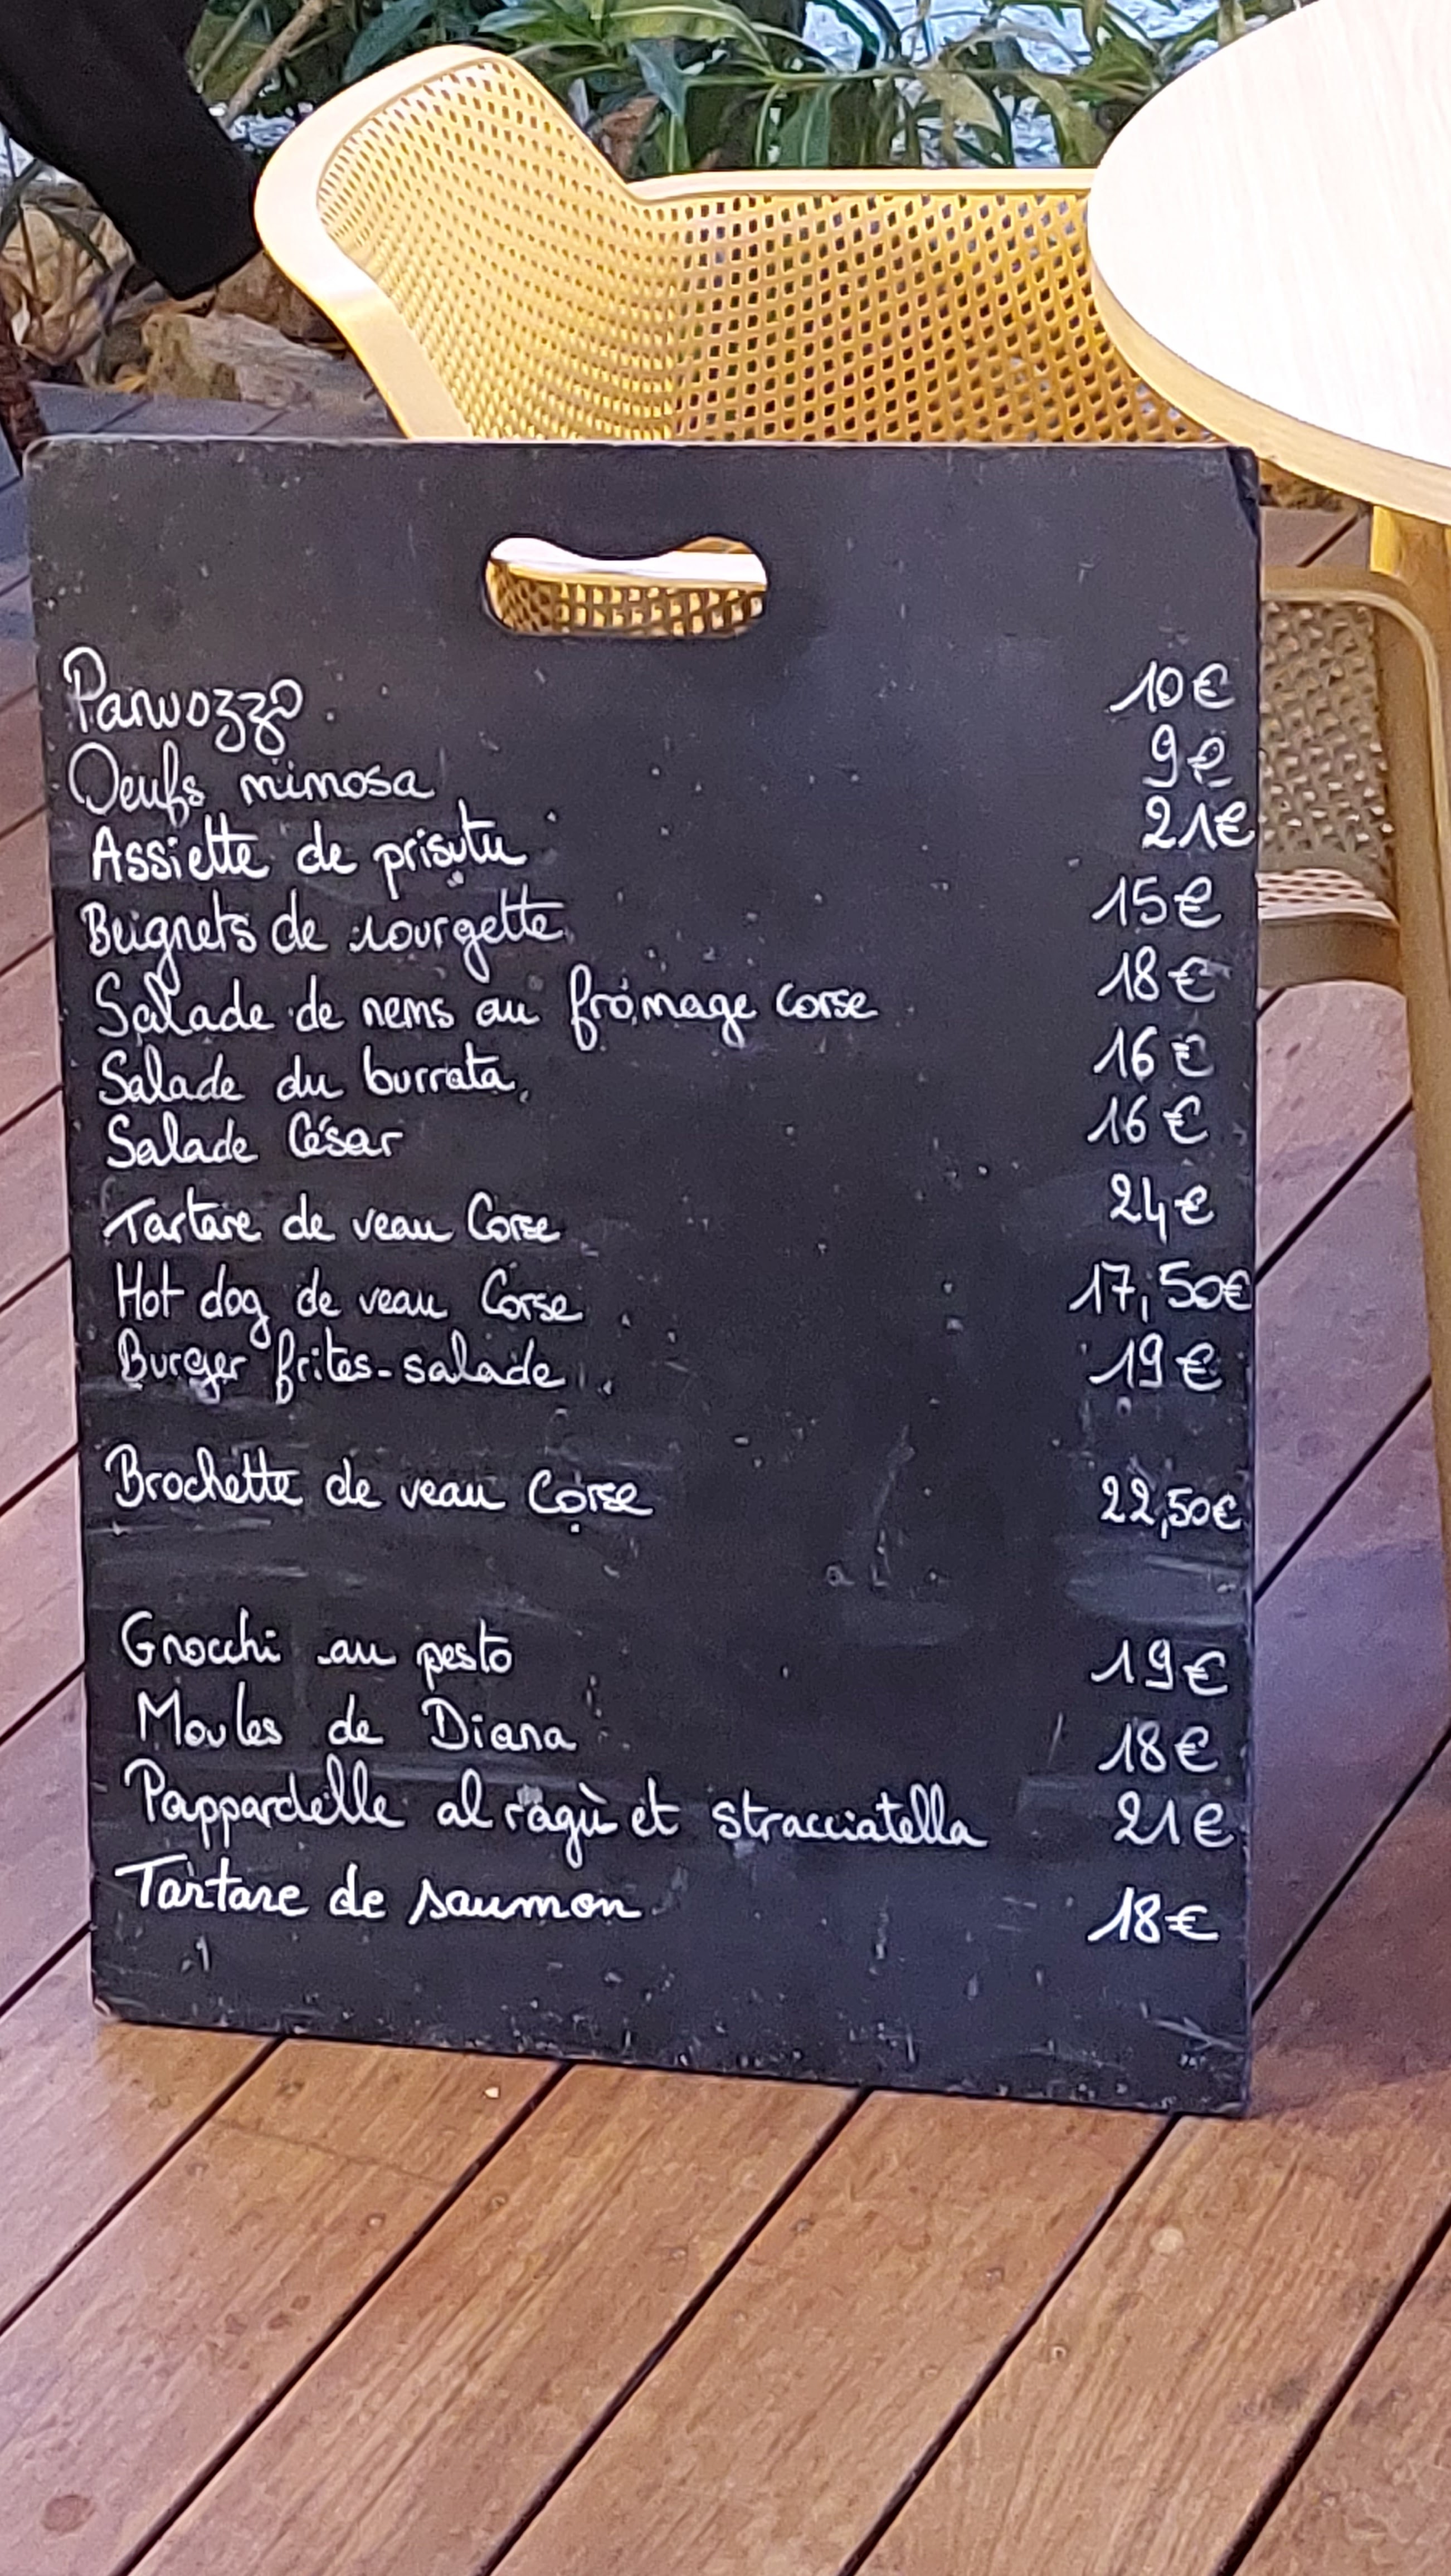 Panuozzo 10€
Oeufs mimosa 9€
Assiette de prisutu 21€
Beignets de courgette 15€
Salade de nems au fromage corse 18€
Salade du burrata 16€
Salade César 16€
Tartare de veau Corse 24€
Hot dog de veau Corse 17,50€
Burger frites-salade 19€
Brochette de veau Corse 22,50€
Gnocchi au pesto 19€
Moules de Diana 18€
Pappardelle al ragù et stracciatella 21€
Tartare de saumon 18€